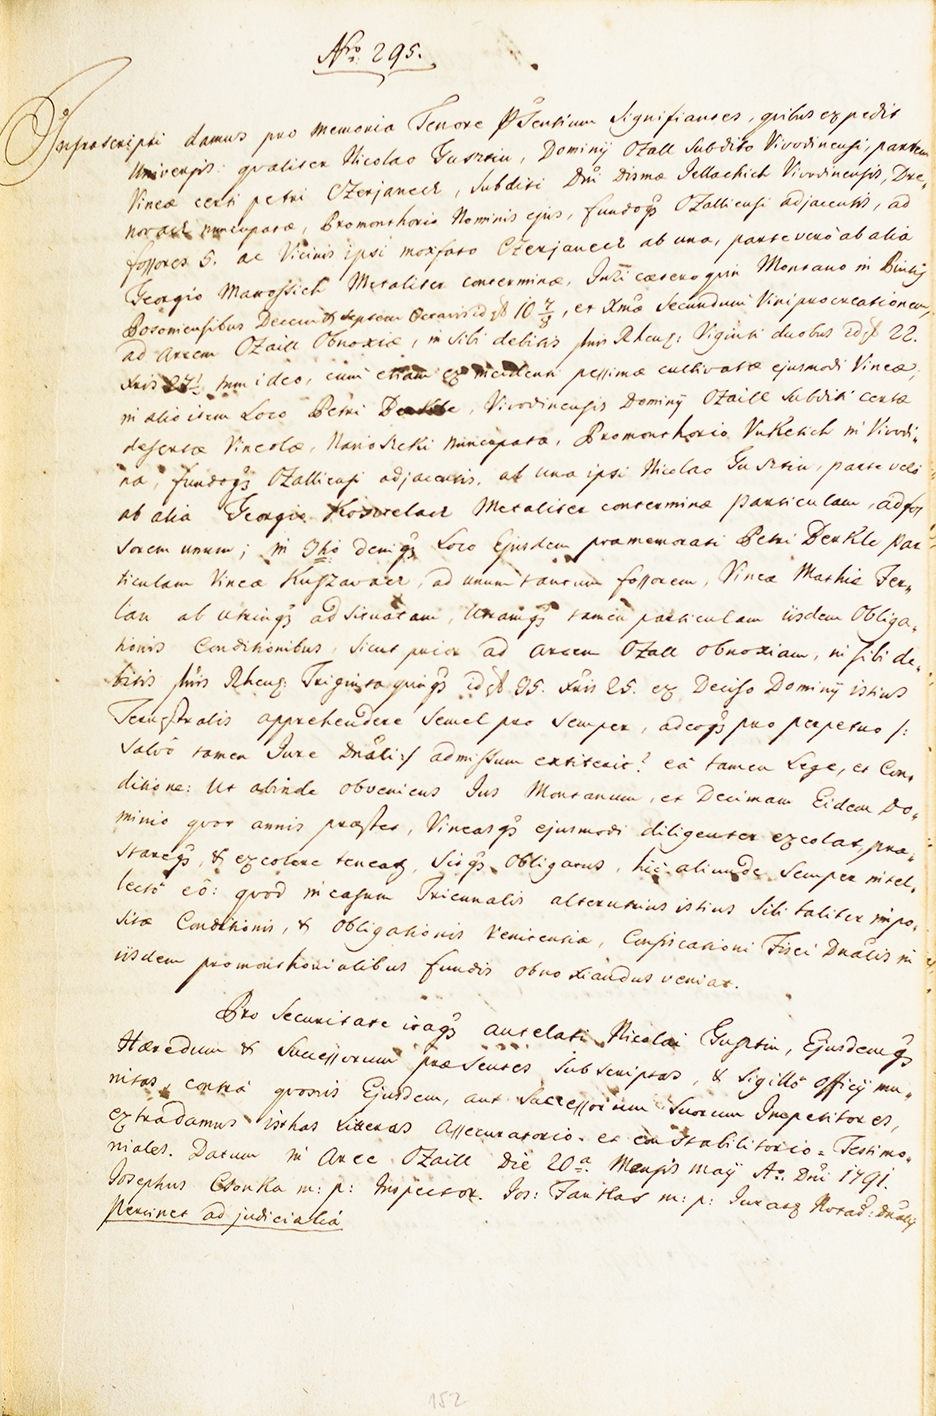 Nro. 295.
Infrascripti damus pro memoria Tenore pSentium Significantes, quibus expedit
Universis: qualiter Nicolao Gusztin, Dominij Ozall Subdito Vivodinensi, partem
Vineæ certi petri Czerjanech, Subditi Dni Dismæ Jellachich Vivodinensis, Dre-
novacz nuncupatæ, Promonthorio Nominis ejus, fundoqz Ozallicensi adjacentis, ad
fossores 5. ac Vicinis ipsi moxfato Czerjanech ab una, parte verò ab alia
Georgio Marossich Metaliter conterminæ, Juri cæteroquin Montano in Bintis
Posoniensibus Decem & Septem Octavis idqz 10 7/8, et Xmæ Secundum Vini procreationem,
ad arcem Ozaill Obnoxiæ, in Sibi debitis flnis Rheng: Viginti duobus idqz 22.
Xris 27½ tum ideo, cum etiam ex incidenti pessimæ cultivatæ ejusmodi Vineæ;
in alio item Loco Petri Derkle, Vivodinensis Dominij Ozaill Subditi certæ
desertæ Vineolæ, nuncupatæ, Promonthorio Vuketich in Vivodi-
na, fundoqz Ozallicensi adjacentis, ab una ipsi Nicolao Gusztin, parte vero
ab alia Georgio Koszrelacz Metaliter conterminæ particulam, ad fos
sorem unum; in 3tio deniqz Loco Ejusdem præmemorati Petri Derkle par
ticulam Vineæ Kuszavacz, ad unum tantum fossorem, Vineæ Mathiæ Fer-
lan ab utrinqz ad Situatam, Utramqz tamen particulam iisdem Obliga-
tionis Conditionibus, Sicut prior ad arcem Ozall obnoxiam, in Sibi de-
bitis flnis Rheng. Triginta quinqz idqz 35. Xris 25. ex Deciso Dominij istius
Terrestralis apprehendere Semel pro Semper, adeoqz pro perpetuo /:
Salvô tamen Jure Dnali:/ admissum extiterit? eâ tamen Lege, et Con-
ditione: Ut abinde obveniens Jus Montanum, et Decimam Eidem Do-
minio quot annis præstet, Vineasqz ejusmodi diligenter excolat, præ-
stareqz, & excolere teneatz, Sitqz Obligatus, hic aliunde Semper intel-
lectô eô: quod in casum Tricennalis alterutrius istius Sibi taliter impo-
sitæ Conditionis, & Obligationis renitentiæ, Confiscationi Fisci Dnalis in
iisdem promonthorialibus fundis obnoxiandus veniat.
Pro Securitate itaqz antelati Nicolai Gusztin, Ejusdemqz
Hæredum & Successorum præsentes Subscriptas, & Sigillô officij mu-
nitas, contrà quosvis Ejusdem, aut Successorum Suorum Impetitores,
extradamus isthas Litteras Assecuratorio- et Constabilitorio = Testimo-
niales. Datum in Arce Ozaill Die 20a. Mensis Maij Ao. Dni 1791.
Josephus Csonka m: p: Inspector. Jos: m: p: Juratz Notarz: Dnalis
Pertinet ad judicialia
152